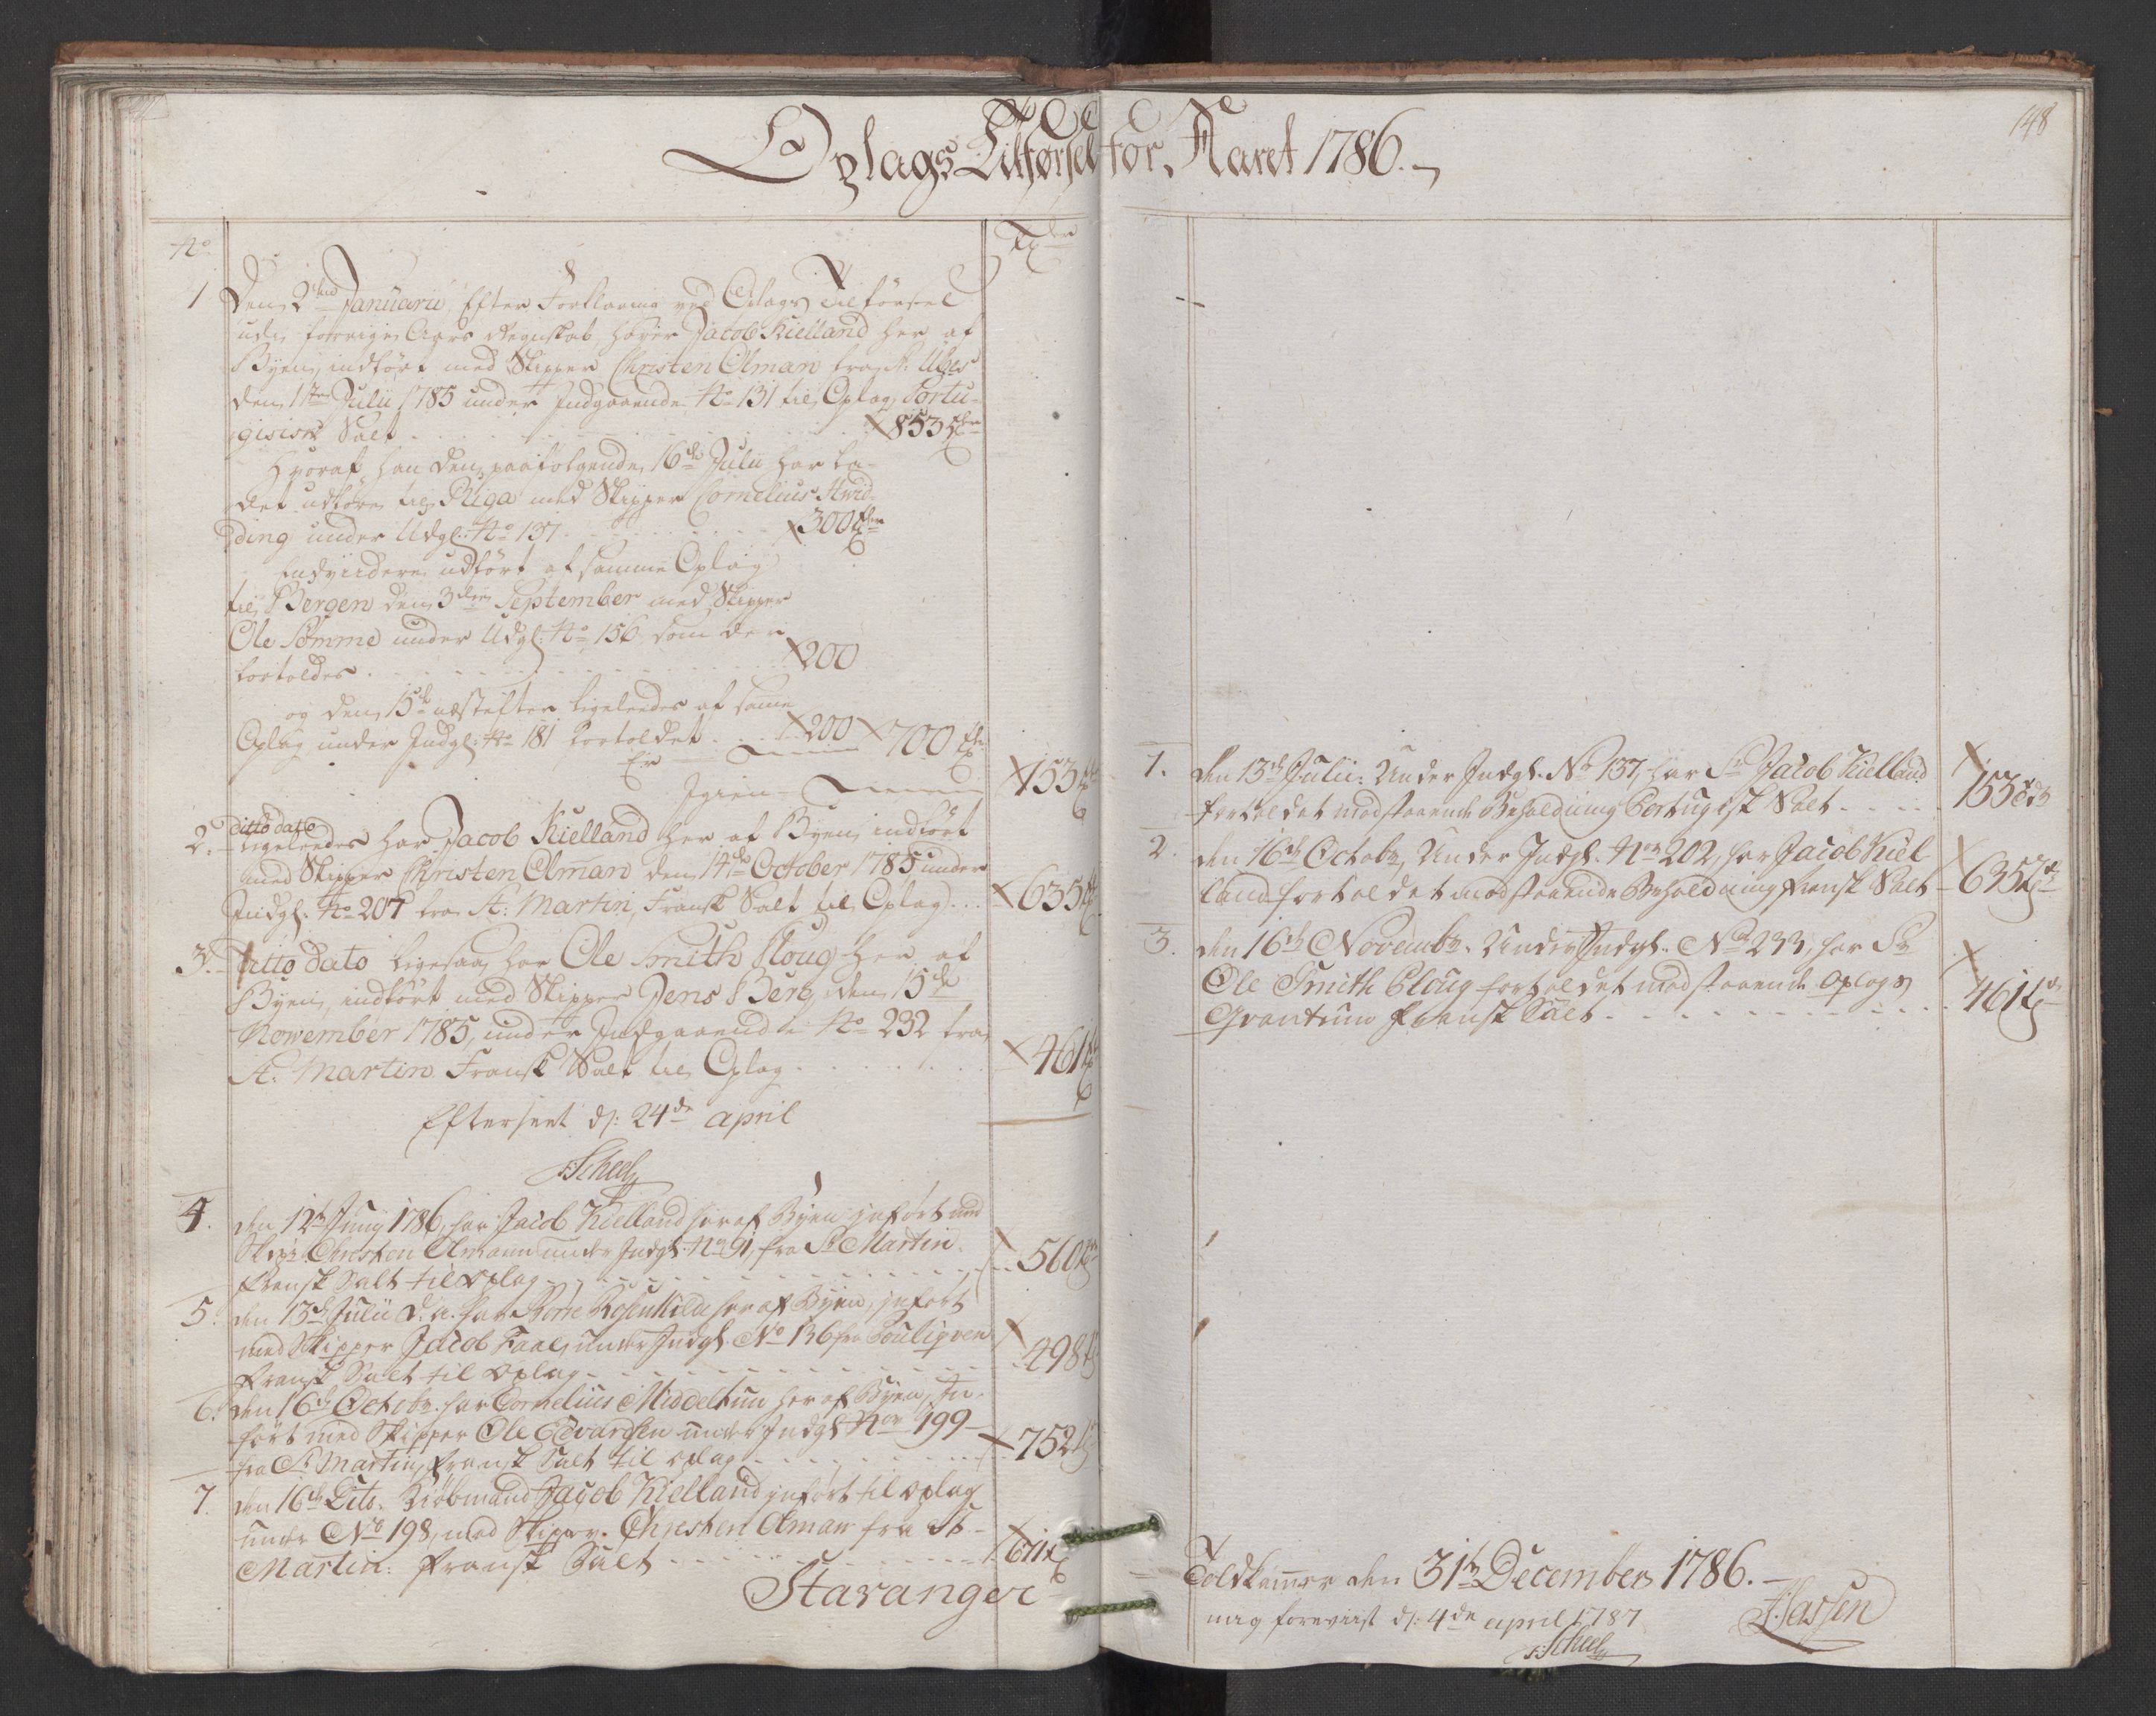 148
Oplags Tilførsel for Aaret 1786.
No
Tdr
1 Den 2den Januarii Efter Forklaring ved Oplags Tilførsel
udi forrige Aars Regnskab, haver Jacob Kielland her af
Byen, indført med Skipper Christen Olman fra St: Ubes
den 1ste Julii 1785 under Indgaaende No 131 til Oplag Portu-
gisisk Salt . . . 853 Tdr
Hvoraf han den paafølgende 16de Julii har la-
det udføre til Riga med Skipper Cornelius Hvid-
ding under Udgl: No 137 . . . 300 Tdr
Endviidere udført af samme Oplag
til Bergen den 3die September med Skipper
Ole Sømme under Udgl: No 156 som der
fortoldes . . . 200
og den 15de næstefter ligeleedes af samme
Oplag under Indgl: No 181 fortoldet . . . 200 700 Tdr
Er
Igien 153 Td
2. ditto dato
Ligeleedes har Jacob Kielland her af Byen indført
med Skipper Christen Olman den 14de October 1785 under
Indgl. No 207 fra St: Martin, Fransk Salt til Oplag . . . 635 Td
3. Ditto dato ligesaa har Ole Smith Ploug her af
Byen, indført med Skipper Jens Berg, den 15de
November 1785, under Indgaaende No 232 fra
St. Martin Fransk Salt til Oplag . . . 461 Td
Efterseet d: 24de april
Scheel
4. den 12te Juny 1786, har Jacob Kielland her af Byen inført med
Skipr Christen Olmann under Indgl. No 91, fra St Martin.
Fransk Salt til oplag . . . 560 Td
5. den 13de Julii d. a. har Børre Rosenkilde her af Byen, inført
med Skipper Jacob Faae, under Indgl. No 136 fra Pouliqven
Fransk Salt til Oplag . . . 498 Td
6. den 16de Octobr. har Cornelius Middelthun her af Byen, In-
ført med Skipper Ole Edvardsen under Indgl No 199
fra St Martin, Fransk Salt til oplag . . . 752 Td
7. den 16de Dito. Kiøbmand Jacob Kielland inført til oplag
under No 198, med Skipper. Christen Olman fra St
Martin: Fransk Salt . . . 611 Td
Stavanger
1. den 13de Julii: Under Indgl. No 137, har Sr Jacob Kielland
fortoldet modstaaende Beholdning Portugisk Salt . . . 153 Tdr
2. den 16de Octobr, Under Indgl. No 202, har Jacob Kiel
land fortoldet modstaaende Beholdning Fransk Salt 635 Td
3. den 16de Novembr. Under Indgl. No 233, har Sr
Ole Smith Ploug fortoldet modstaaende Oplags
Qvantum Fransk Salt . . . 461 Td
Toldkamer den 31te December 1786.
mig foreviist d: 4de april 1787
Scheel